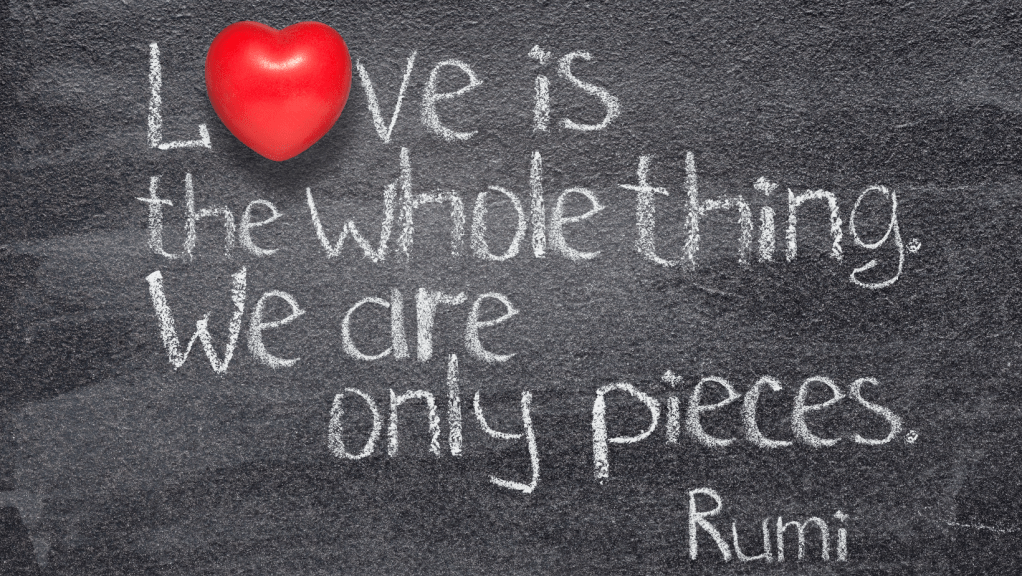 L❤ve is
the whole thing.
We are
only pieces.
Rumi